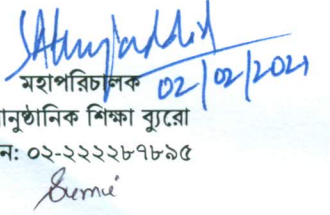 মহাপরিচালক
02/02/2021
নুষ্ঠানিক শিক্ষা ব্যুরো
ন: ০২-২২২২৮৭৮৯৫